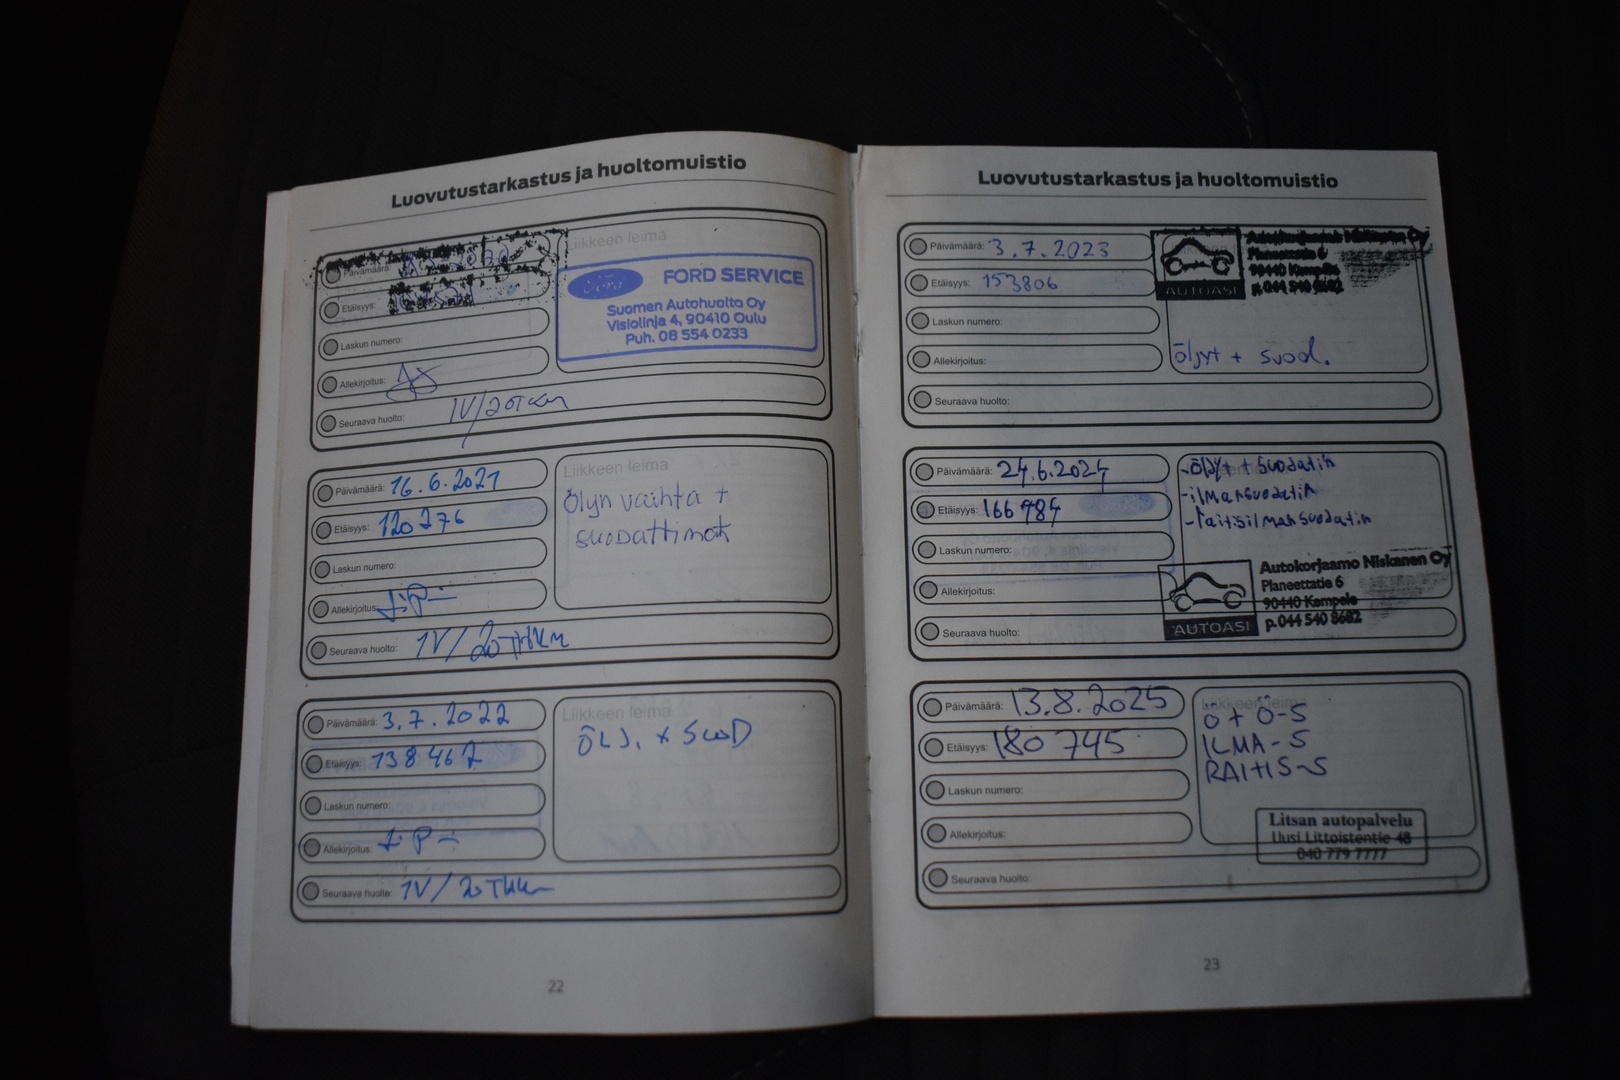 Luovutustarkastus ja huoltomuistio
Päivämäärä:
Liikkeen leima
Etäisyys:
Laskun numero:
Allekirjoitus:
Seuraava huolto: 1V/20Tkm
Ford
FORD SERVICE
Suomen Autohuolto Oy
Visiolinja 4, 90410 Oulu
Puh. 08 554 0233
Päivämäärä: 16.6.2021
Etäisyys: 120276
Laskun numero:
Allekirjoitus: J.P-
Seuraava huolto: 1V/20THKm
Liikkeen leima
Ölyn vaihta +
suodattimat
Päivämäärä: 3.7.2022
Etäisyys: 138462
Laskun numero:
Allekirjoitus: J.P-
Seuraava huolto: 1V/20Tkm
Liikkeen leima
ÖLJ. + SUOD
22
Luovutustarkastus ja huoltomuistio
Päivämäärä: 3.7.2023
Etäisyys: 153806
Laskun numero:
Allekirjoitus:
Seuraava huolto:
AUTOASI
Autokorjaamo Niskanen Oy
Planeettatie 6
90440 Kempele
p.044 540 8682
öljyt + suod.
Päivämäärä: 24.6.2024
Etäisyys: 166784
Laskun numero:
Allekirjoitus:
Seuraava huolto:
-öljyt + suodatin
-ilmansuodatin
-raitisilmansuodatin
AUTOASI
Autokorjaamo Niskanen Oy
Planeettatie 6
90440 Kempele
p.044 540 8682
Päivämäärä: 13.8.2025
Etäisyys: 180745
Laskun numero:
Allekirjoitus:
Seuraava huolto:
Liikkeen leima
Ö + Ö-S
ILMA-S
RAITIS-S
Litsan autopalvelu
Uusi Littoistentie 48
040 779 7777
23